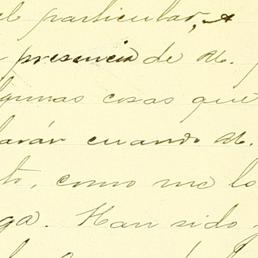 el particular, A
presencia de M.
algunas cosas que
cuando M.
to, como me lo
ga. Han sido